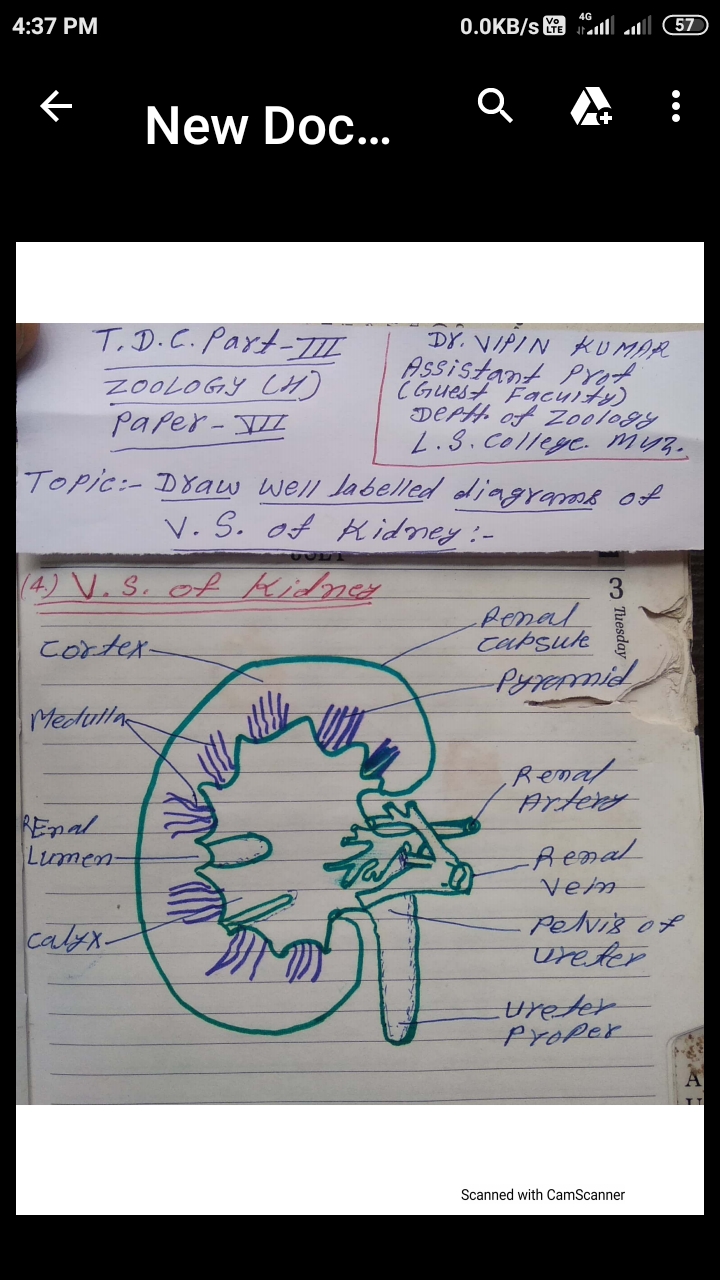 4:37 PM
0.0KB/s Vo LTE 4G 57
New Doc...
T.D.C. Part-III
ZOOLOGY (H)
Paper-VII
Dr. VIPIN KUMAR
Assistant Prof
(Guest Faculty)
Deptt. of Zoology
L.S. College. Muz.
Topic:- Draw well labelled diagrams of
V.S. of Kidney:-
JULY
(4.) V.S. of Kidney
3
Tuesday
Cortex
Renal
capsule
Pyramid
Medulla
Renal
Artery
REnal
Lumen
Renal
Vein
Calyx
Pelvis of
Ureter
Ureter
Proper
A
Scanned with CamScanner